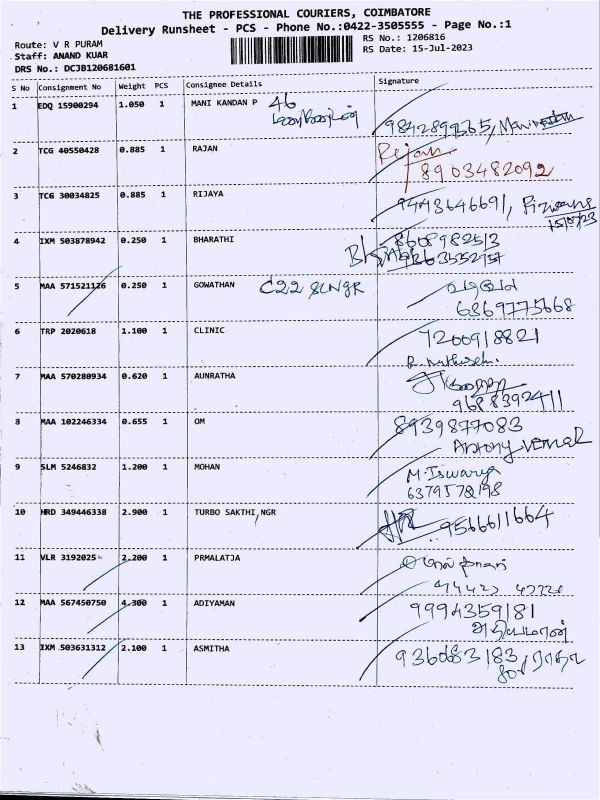 THE PROFESSIONAL COURIERS, COIMBATORE
Delivery Runsheet - PCS - Phone No.:0422-3505555 - Page No.:1
Route: V R PURAM
RS No.: 1206816
Staff: ANAND KUAR
RS Date: 15-Jul-2023
DRS No.: DCJB120681601
S No Consignment No Weight PCS Consignee Details Signature
1 EDQ 15900294 1.050 1 MANI KANDAN P 46
மணிகண்டன்
2 TCG 40550428 0.885 1 RAJAN Rejan
8903482092
3 TCG 30034825 0.885 1 RIJAYA 9443646691,
15/07/23
4 IXM 503878942 0.250 1 BHARATHI
5 MAA 571521126 0.250 1 GOWATHAN C22
6369775668
6 TRP 2020618 1.100 1 CLINIC 7200918821
7 MAA 570280934 0.620 1 AUNRATHA
9688392411
8 MAA 102246334 0.655 1 OM 8939877083
Antony
9 SLM 5246832 1.200 1 MOHAN M. Iswarya
6379578198
10 HRD 349446338 2.900 1 TURBO SAKTHI NGR 9566611664
11 VLR 3192025 2.200 1 PRMALATJA
12 MAA 567450750 4.300 1 ADIYAMAN 9994359181
அதியமான்
13 IXM 503631312 2.100 1 ASMITHA 9360683183